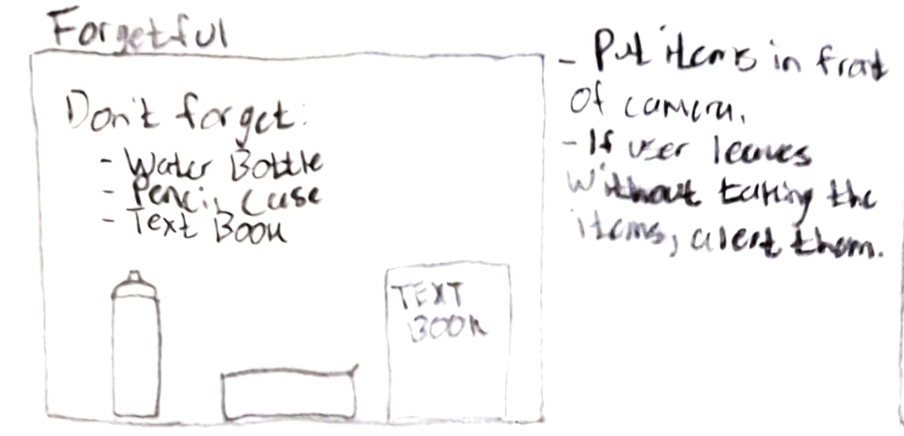 Forgetful
Don't forget:
- Water Bottle
- Pencil Case
- Text Book
TEXT
BOOK
- Put items in front
of camera.
- If user leaves
without taking the
items, alert them.